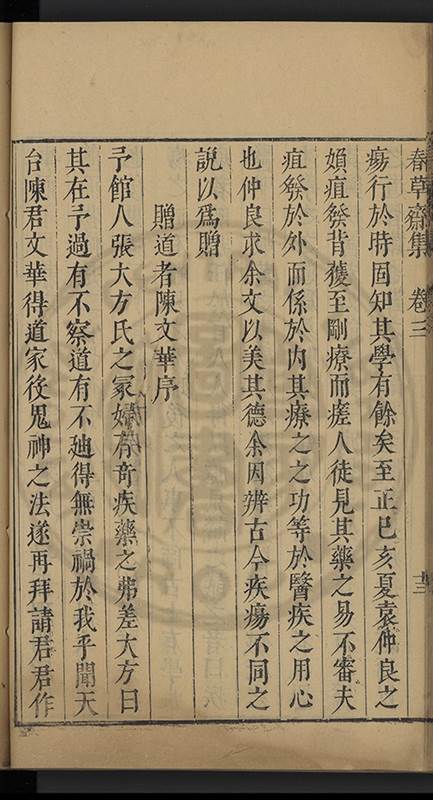 春草齋集 卷三 十三
瘍行於時固知其學有餘矣至正巳亥夏袁仲良之
媍疽發背獲至剛療而瘥人徒見其藥之易不審夫
疽發於外而係於內其療之之功等於醫疾之用心
也仲良求余文以美其德余因辨古今疾瘍不同之
說以爲贈
贈道者陳文華序
予館人張大方氏之冢婦有奇疾藥之弗差大方曰
其在予過有不察道有不廸得無祟禍於我乎聞天
台陳君文華得道家役鬼神之法遂再拜請君君作